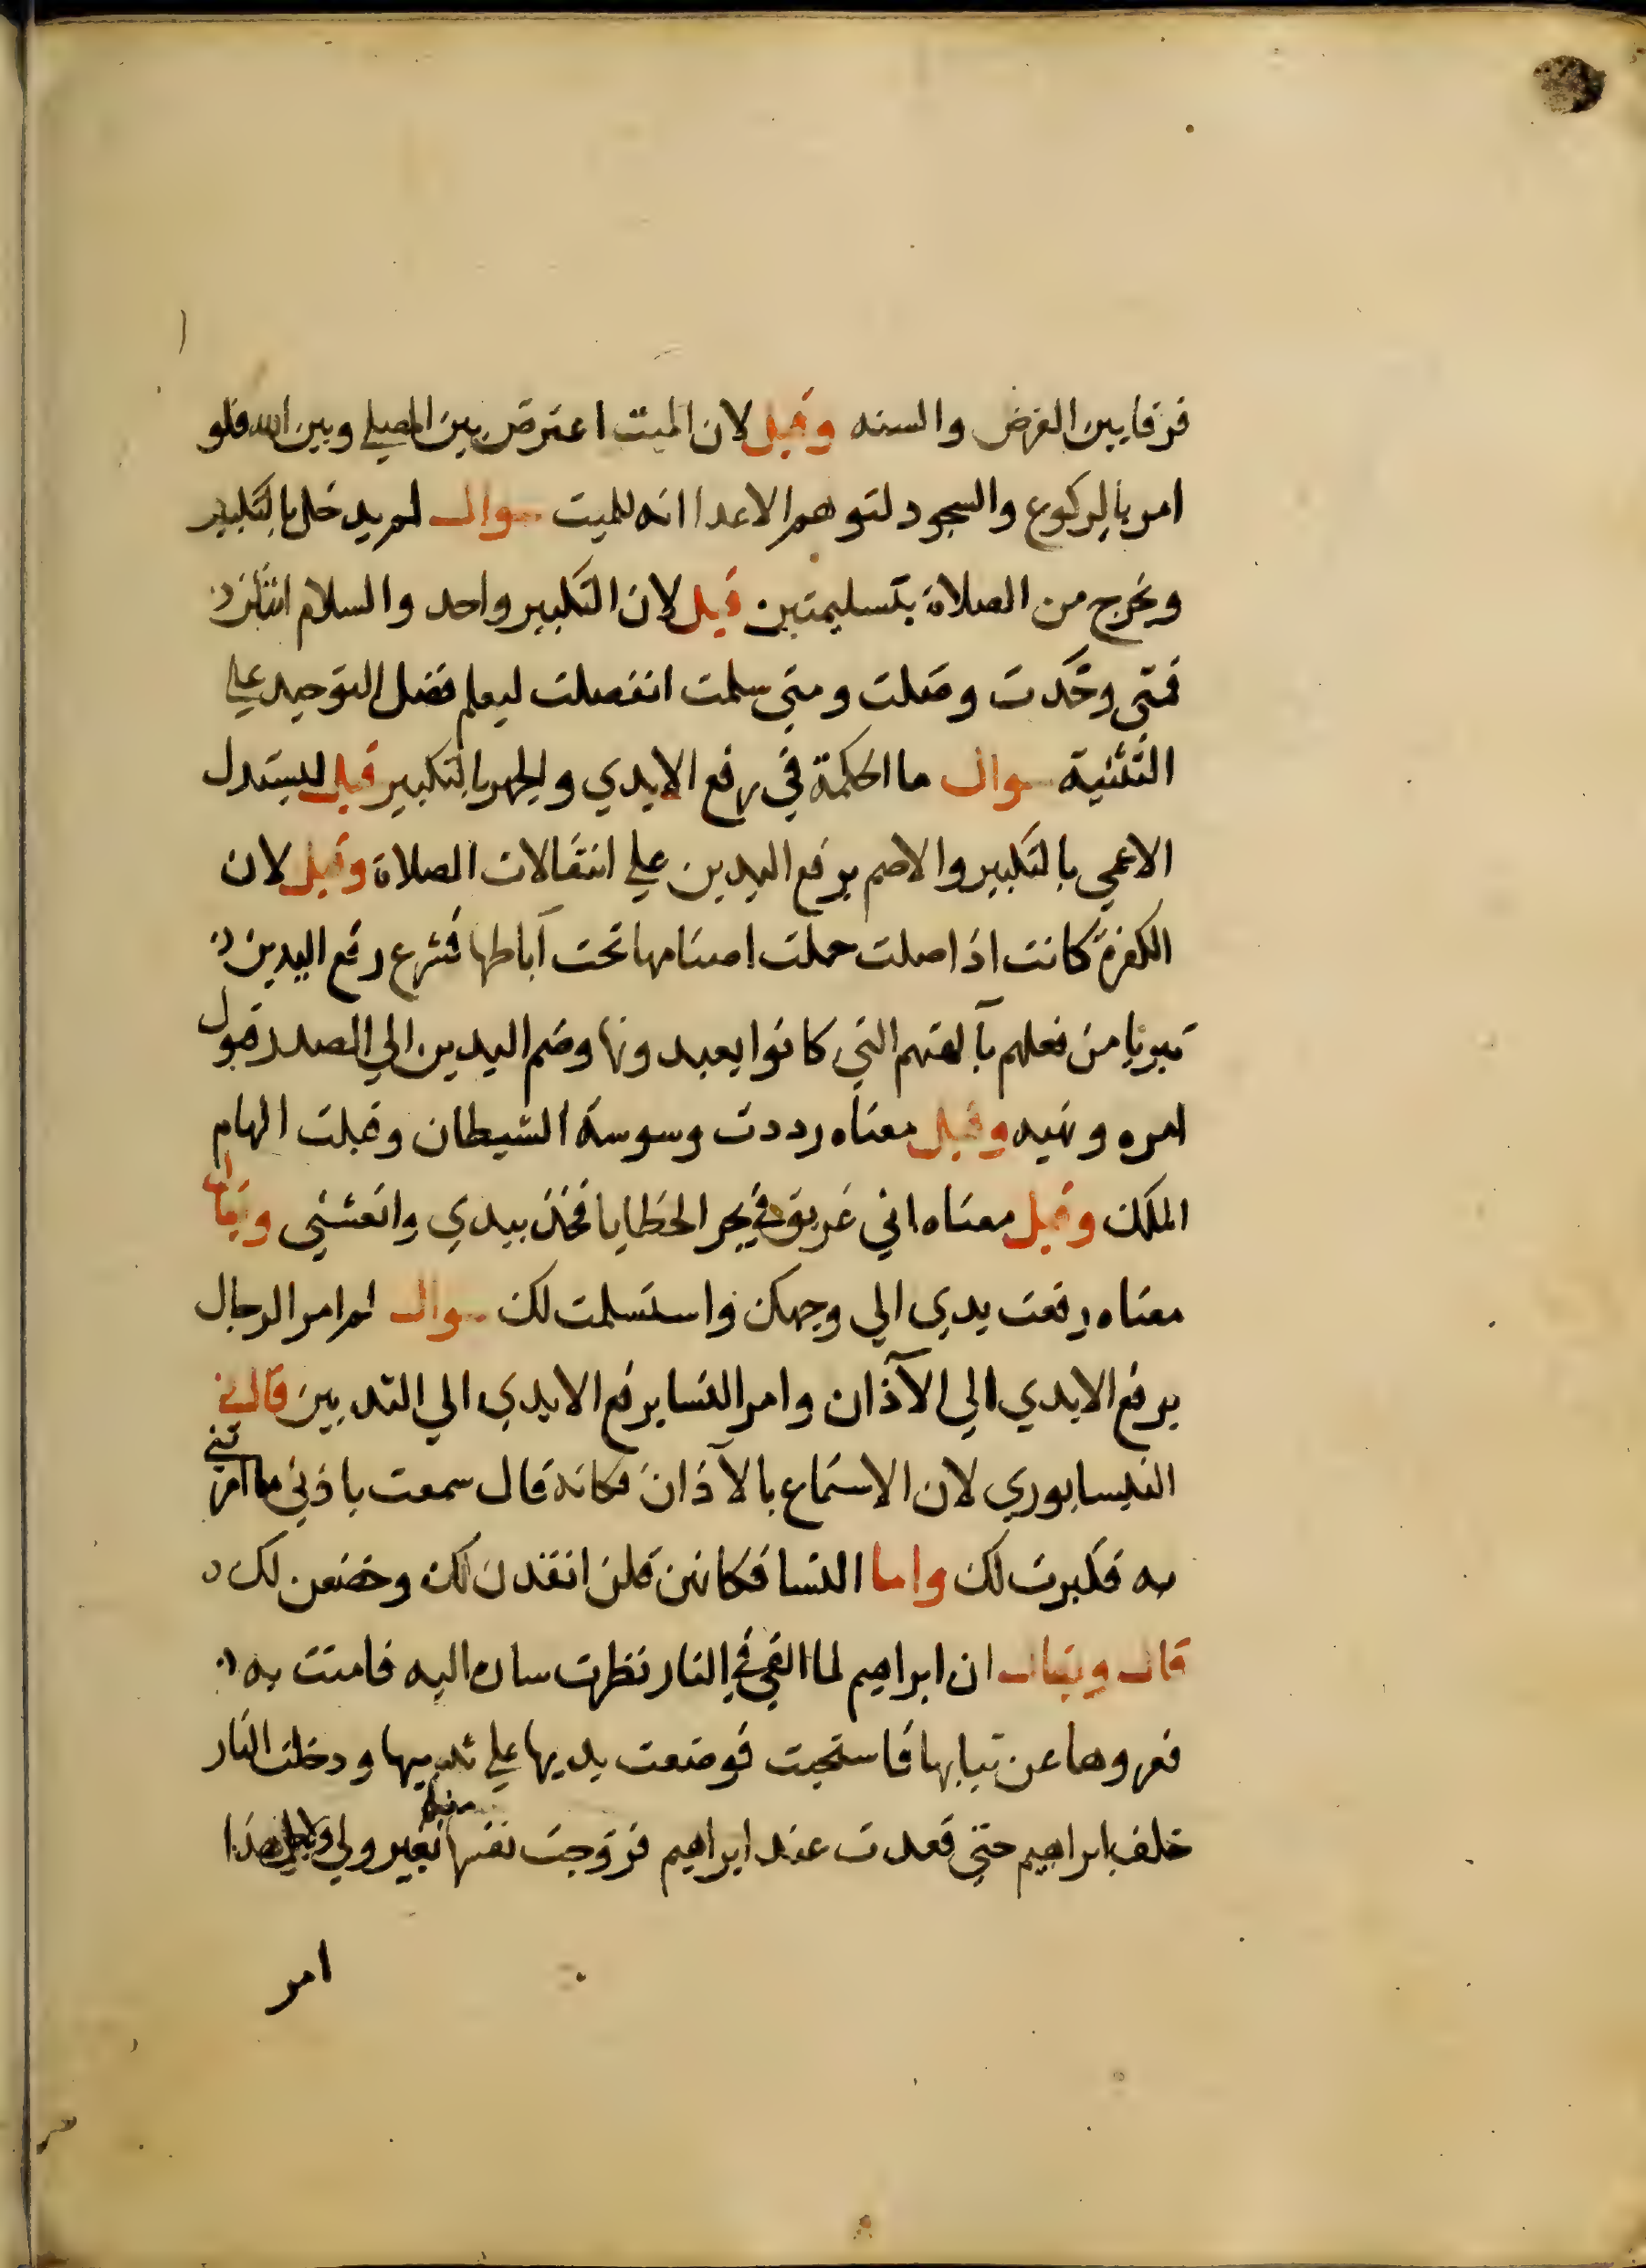 فرقا بين الفرض والسنه وقيل لان الميت اعترض بين المصلي وبين الله فلو
امر بالركوع والسجود لتوهم الاعدا انه للميت سوال لم يدخل بالتكبير
ويخرج من الصلاة بتسليمتين قيل لان التكبير واحد والسلام اثنان
فمتي وحَّدت وصلت ومتي سلمت انفصلت ليعلم فضل التوحيد علي
التثنية سوال ما الحكمة في رفع الايدي والجهر بالتكبير قيل ليستدل
الاعمي بالتكبير والاصم برفع اليدين علي انتقالات الصلاة وقيل لان
الكفرة كانت اذا صلت حملت اصنامها تحت آباطها فشرع رفع اليدين
تبريا من فعلهم بآلهتهم التي كانوا يعبدونها وضم اليدين الي الصدر قبول
امره ونهيه وقيل معناه رددت وسوسة الشيطان وقبلت الهام
الملك وقيل معناه اني غريق في بحر الخطايا فخذ بيدي وانعشني ويقال
معناه رفعت يدي الي وجهك واستسلمت لك سوال لم امر الرجال
برفع الايدي الي الآذان وامر النسا برفع الايدي الي الثديين قال
النيسابوري لان الاستماع بالآذان فكانه قال سمعت باذني ما امرتني
به فكبرت لك واما النسا فكانهن قلن انقدن لك وخضعن لك
قال ويقال ان ابراهيم لما القي في النار نظرت ساره اليه فامنت به
فعروها عن ثيابها فاستحيت فوضعت يديها علي ثدييها ودخلت النار
خلف ابراهيم حتي قعدت عند ابراهيم فزوجت نفسها منه بغير ولي ولاجل هذا
امر